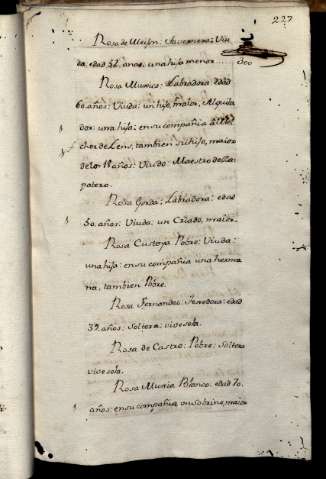 227
Rosa de Meijon: Viu
da, edad 52 anos, una hija menor
Rosa Munios: Labradora: edad
60 años: Viuda: un hijo, maior,
dor: una hija: en su compañia
de Lens, tambien su hijo, maior
de los 18 años: Viudo: Maestro de Za
patero.
Rosa Gorda; Labradora: edad
50. años: Viuda: un Criado, maior.
Rosa Custoya Pobre: Viuda:
una hija: en su compañia una herma
na, tambien Pobre.
Rosa Fernandez: edad
32. años: Soltera: vive sola.
Rosa de Castro: Pobre: Soltera
vive sola.
Rosa Maria Blanco: edad 70.
años: en su compañia, un Sobrino, maior